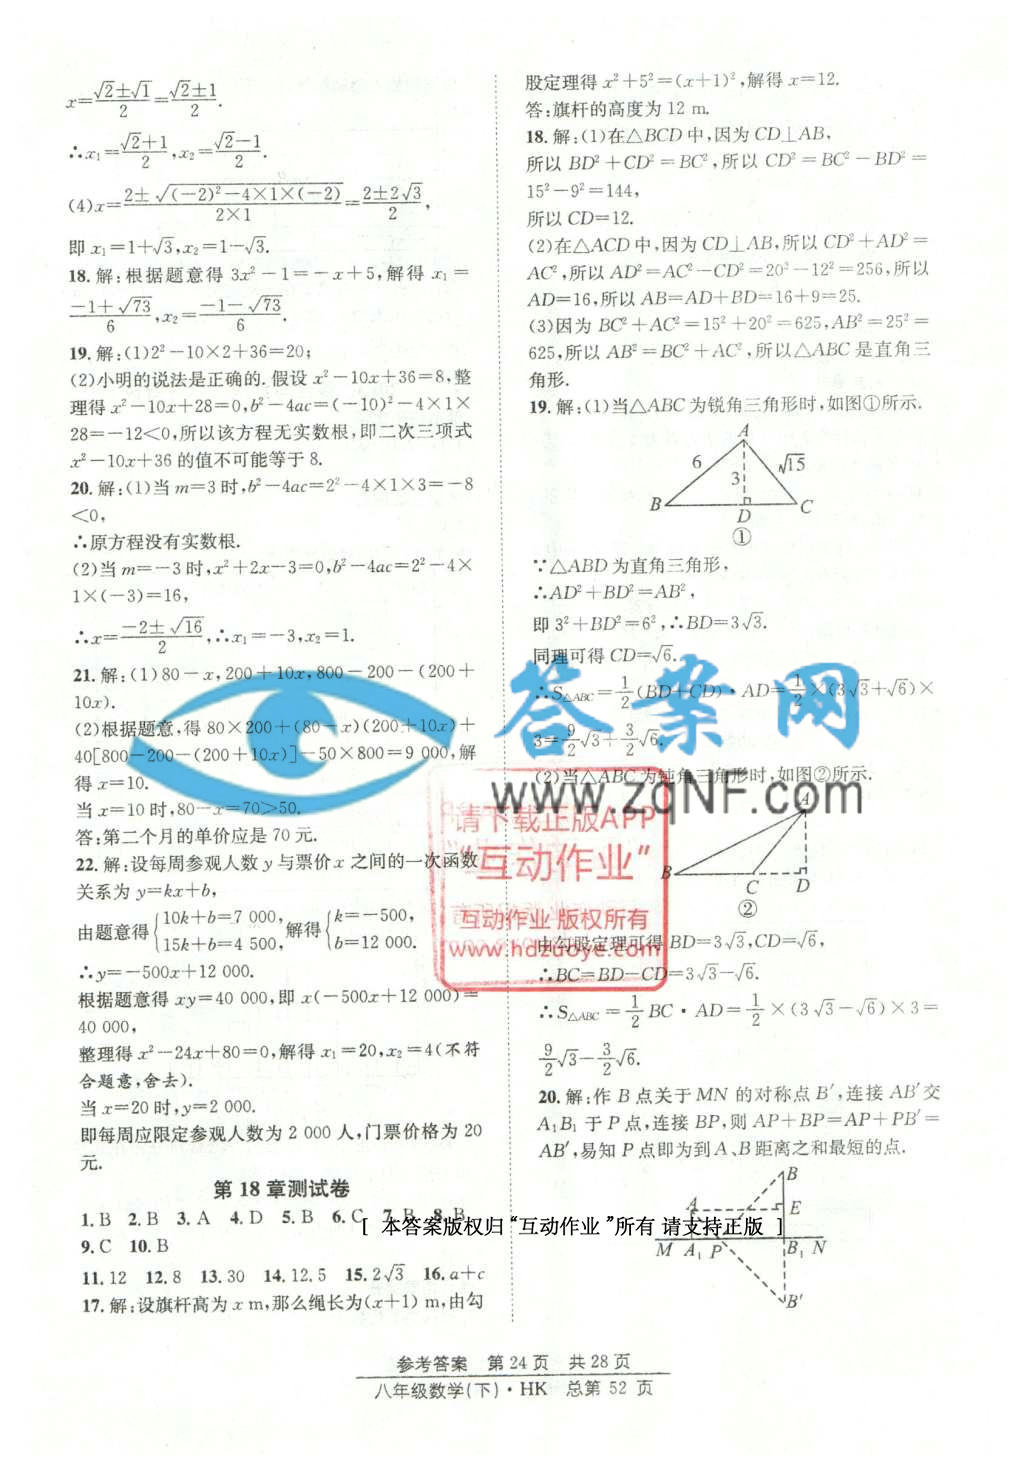 x=(√2±√1)/2=(√2±1)/2.
∴x₁=(√2+1)/2,x₂=(√2−1)/2.
(4)x=(2±√((−2)²−4×1×(−2)))/(2×1)=(2±2√3)/2,
即 x₁=1+√3,x₂=1−√3.
18.解:根据题意得 3x²−1=−x+5,解得 x₁=
(−1+√73)/6,x₂=(−1−√73)/6.
19.解:(1)2²−10×2+36=20;
(2)小明的说法是正确的.假设 x²−10x+36=8,整
理得 x²−10x+28=0,b²−4ac=(−10)²−4×1×
28=−12<0,所以该方程无实数根,即二次三项式
x²−10x+36 的值不可能等于 8.
20.解:(1)当 m=3 时,b²−4ac=2²−4×1×3=−8
<0,
∴原方程没有实数根.
(2)当 m=−3 时,x²+2x−3=0,b²−4ac=2²−4×
1×(−3)=16,
∴x=(−2±√16)/2,∴x₁=−3,x₂=1.
21.解:(1)80−x,200+10x,800−200−(200+
10x).
(2)根据题意,得 80×200+(80−x)(200+10x)+
40[800−200−(200+10x)]−50×800=9 000,解
得 x=10.
当 x=10 时,80−x=70>50.
答:第二个月的单价应是 70 元.
22.解:设每周参观人数 y 与票价 x 之间的一次函数
关系为 y=kx+b,
由题意得{10k+b=7 000, 15k+b=4 500,解得{k=−500, b=12 000.
∴y=−500x+12 000.
根据题意得 xy=40 000,即 x(−500x+12 000)=
40 000,
整理得 x²−24x+80=0,解得 x₁=20,x₂=4(不符
合题意,舍去).
当 x=20 时,y=2 000.
即每周应限定参观人数为 2 000 人,门票价格为 20
元.
第 18 章测试卷
1.B 2.B 3.A 4.D 5.B 6.C 7.B 8.B
9.C 10.B
11.12 12.8 13.30 14.12.5 15.2√3 16.a+c
17.解:设旗杆高为 x m,那么绳长为(x+1) m,由勾
股定理得 x²+5²=(x+1)²,解得 x=12.
答:旗杆的高度为 12 m.
18.解:(1)在△BCD 中,因为 CD⊥AB,
所以 BD²+CD²=BC²,所以 CD²=BC²−BD²=
15²−9²=144,
所以 CD=12.
(2)在△ACD 中,因为 CD⊥AB,所以 CD²+AD²=
AC²,所以 AD²=AC²−CD²=20²−12²=256,所以
AD=16,所以 AB=AD+BD=16+9=25.
(3)因为 BC²+AC²=15²+20²=625,AB²=25²=
625,所以 AB²=BC²+AC²,所以△ABC 是直角三
角形.
19.解:(1)当△ABC 为锐角三角形时,如图①所示.
A
6 3 √15
B D C
①
∵△ABD 为直角三角形,
∴AD²+BD²=AB²,
即 3²+BD²=6²,∴BD=3√3.
同理可得 CD=√6.
∴S△ABC=1/2(BD+CD)·AD=1/2×(3√3+√6)×
3=9/2√3+3/2√6.
(2)当△ABC 为钝角三角形时,如图②所示.
A
B C D
②
由勾股定理可得 BD=3√3,CD=√6,
∴BC=BD−CD=3√3−√6.
∴S△ABC=1/2 BC·AD=1/2×(3√3−√6)×3=
9/2√3−3/2√6.
20.解:作 B 点关于 MN 的对称点 B′,连接 AB′交
A₁B₁ 于 P 点,连接 BP,则 AP+BP=AP+PB′=
AB′,易知 P 点即为到 A、B 距离之和最短的点.
B
A E
M A₁ P B₁ N
B′
答案网
www.zqNF.com
请下载正版APP
“互动作业”
互动作业 版权所有
www.hdzuoye.com
[ 本答案版权归“互动作业”所有 请支持正版 ]
参考答案 第 24 页 共 28 页
八年级数学(下)·HK 总第 52 页